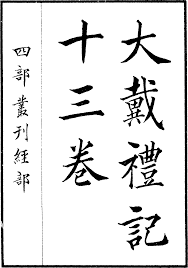 大戴禮記
十三卷
四部叢刊經部